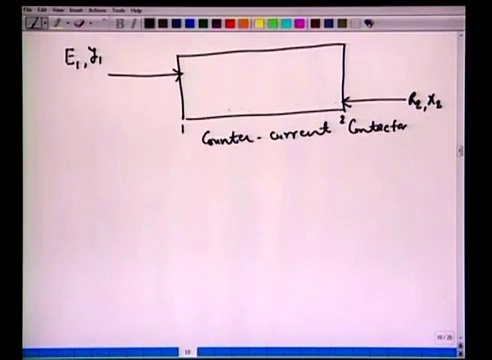 File Edit View Insert Actions Tools Help
B I
E₁, y₁
R₂, x₂
1
2
Counter-current Contactor
10
10/25